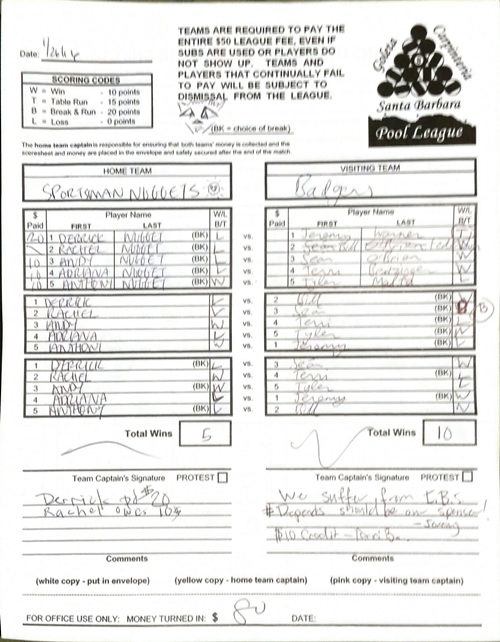 TEAMS ARE REQUIRED TO PAY THE
ENTIRE $50 LEAGUE FEE, EVEN IF
SUBS ARE USED OR PLAYERS DO
NOT SHOW UP. TEAMS AND
PLAYERS THAT CONTINUALLY FAIL
TO PAY WILL BE SUBJECT TO
DISMISSAL FROM THE LEAGUE.
Goleta Carpinteria
Santa Barbara
Pool League
Date:
SCORING CODES
W = Win - 10 points
T = Table Run - 15 points
B = Break & Run - 20 points
L = Loss - 0 points
(BK = choice of break)
The home team captain is responsible for ensuring that both teams' money is collected and the
scoresheet and money are placed in the envelope and safely secured after the end of the match.
HOME TEAM
SPORTSMAN NUGGETS
VISITING TEAM
Badgers
$ Paid Player Name FIRST LAST W/L B/T
20 1 DERRICK NUGGET (BK) L vs.
2 RACHEL NUGGET (BK) vs.
10 3 ANDY NUGGET (BK) vs.
10 4 ADRIANA NUGGET (BK) vs.
10 5 ANTHONY NUGGET (BK) W vs.
$ Paid Player Name FIRST LAST W/L B/T
1 Jeremy Warner
2 Bill
3 Sean O'Brien
4 Terri
5 Tyler
1 DERRICK vs. 2 Bill (BK)
2 RACHEL vs. 3 Sean (BK) B
3 ANDY W vs. 4 Terri (BK) L
4 ADRIANA vs. 5 Tyler (BK)
5 ANTHONY vs. 1 Jeremy (BK)
1 DERRICK (BK) L vs. 3 Sean W
2 RACHEL W vs. 4 Terri L
3 ANDY (BK) W vs. 5 Tyler L
4 ADRIANA L vs. 1 Jeremy (BK) W
5 ANTHONY (BK) L vs. 2 Bill W
Total Wins 5
Total Wins 10
Team Captain's Signature PROTEST
Team Captain's Signature PROTEST
Derrick pd $20
Rachel owes 10
We suffer from I.B.S.
# Depends should be our sponsor!
$10 Credit -
Comments
Comments
(white copy - put in envelope) (yellow copy - home team captain) (pink copy - visiting team captain)
FOR OFFICE USE ONLY: MONEY TURNED IN: $ 80 DATE: